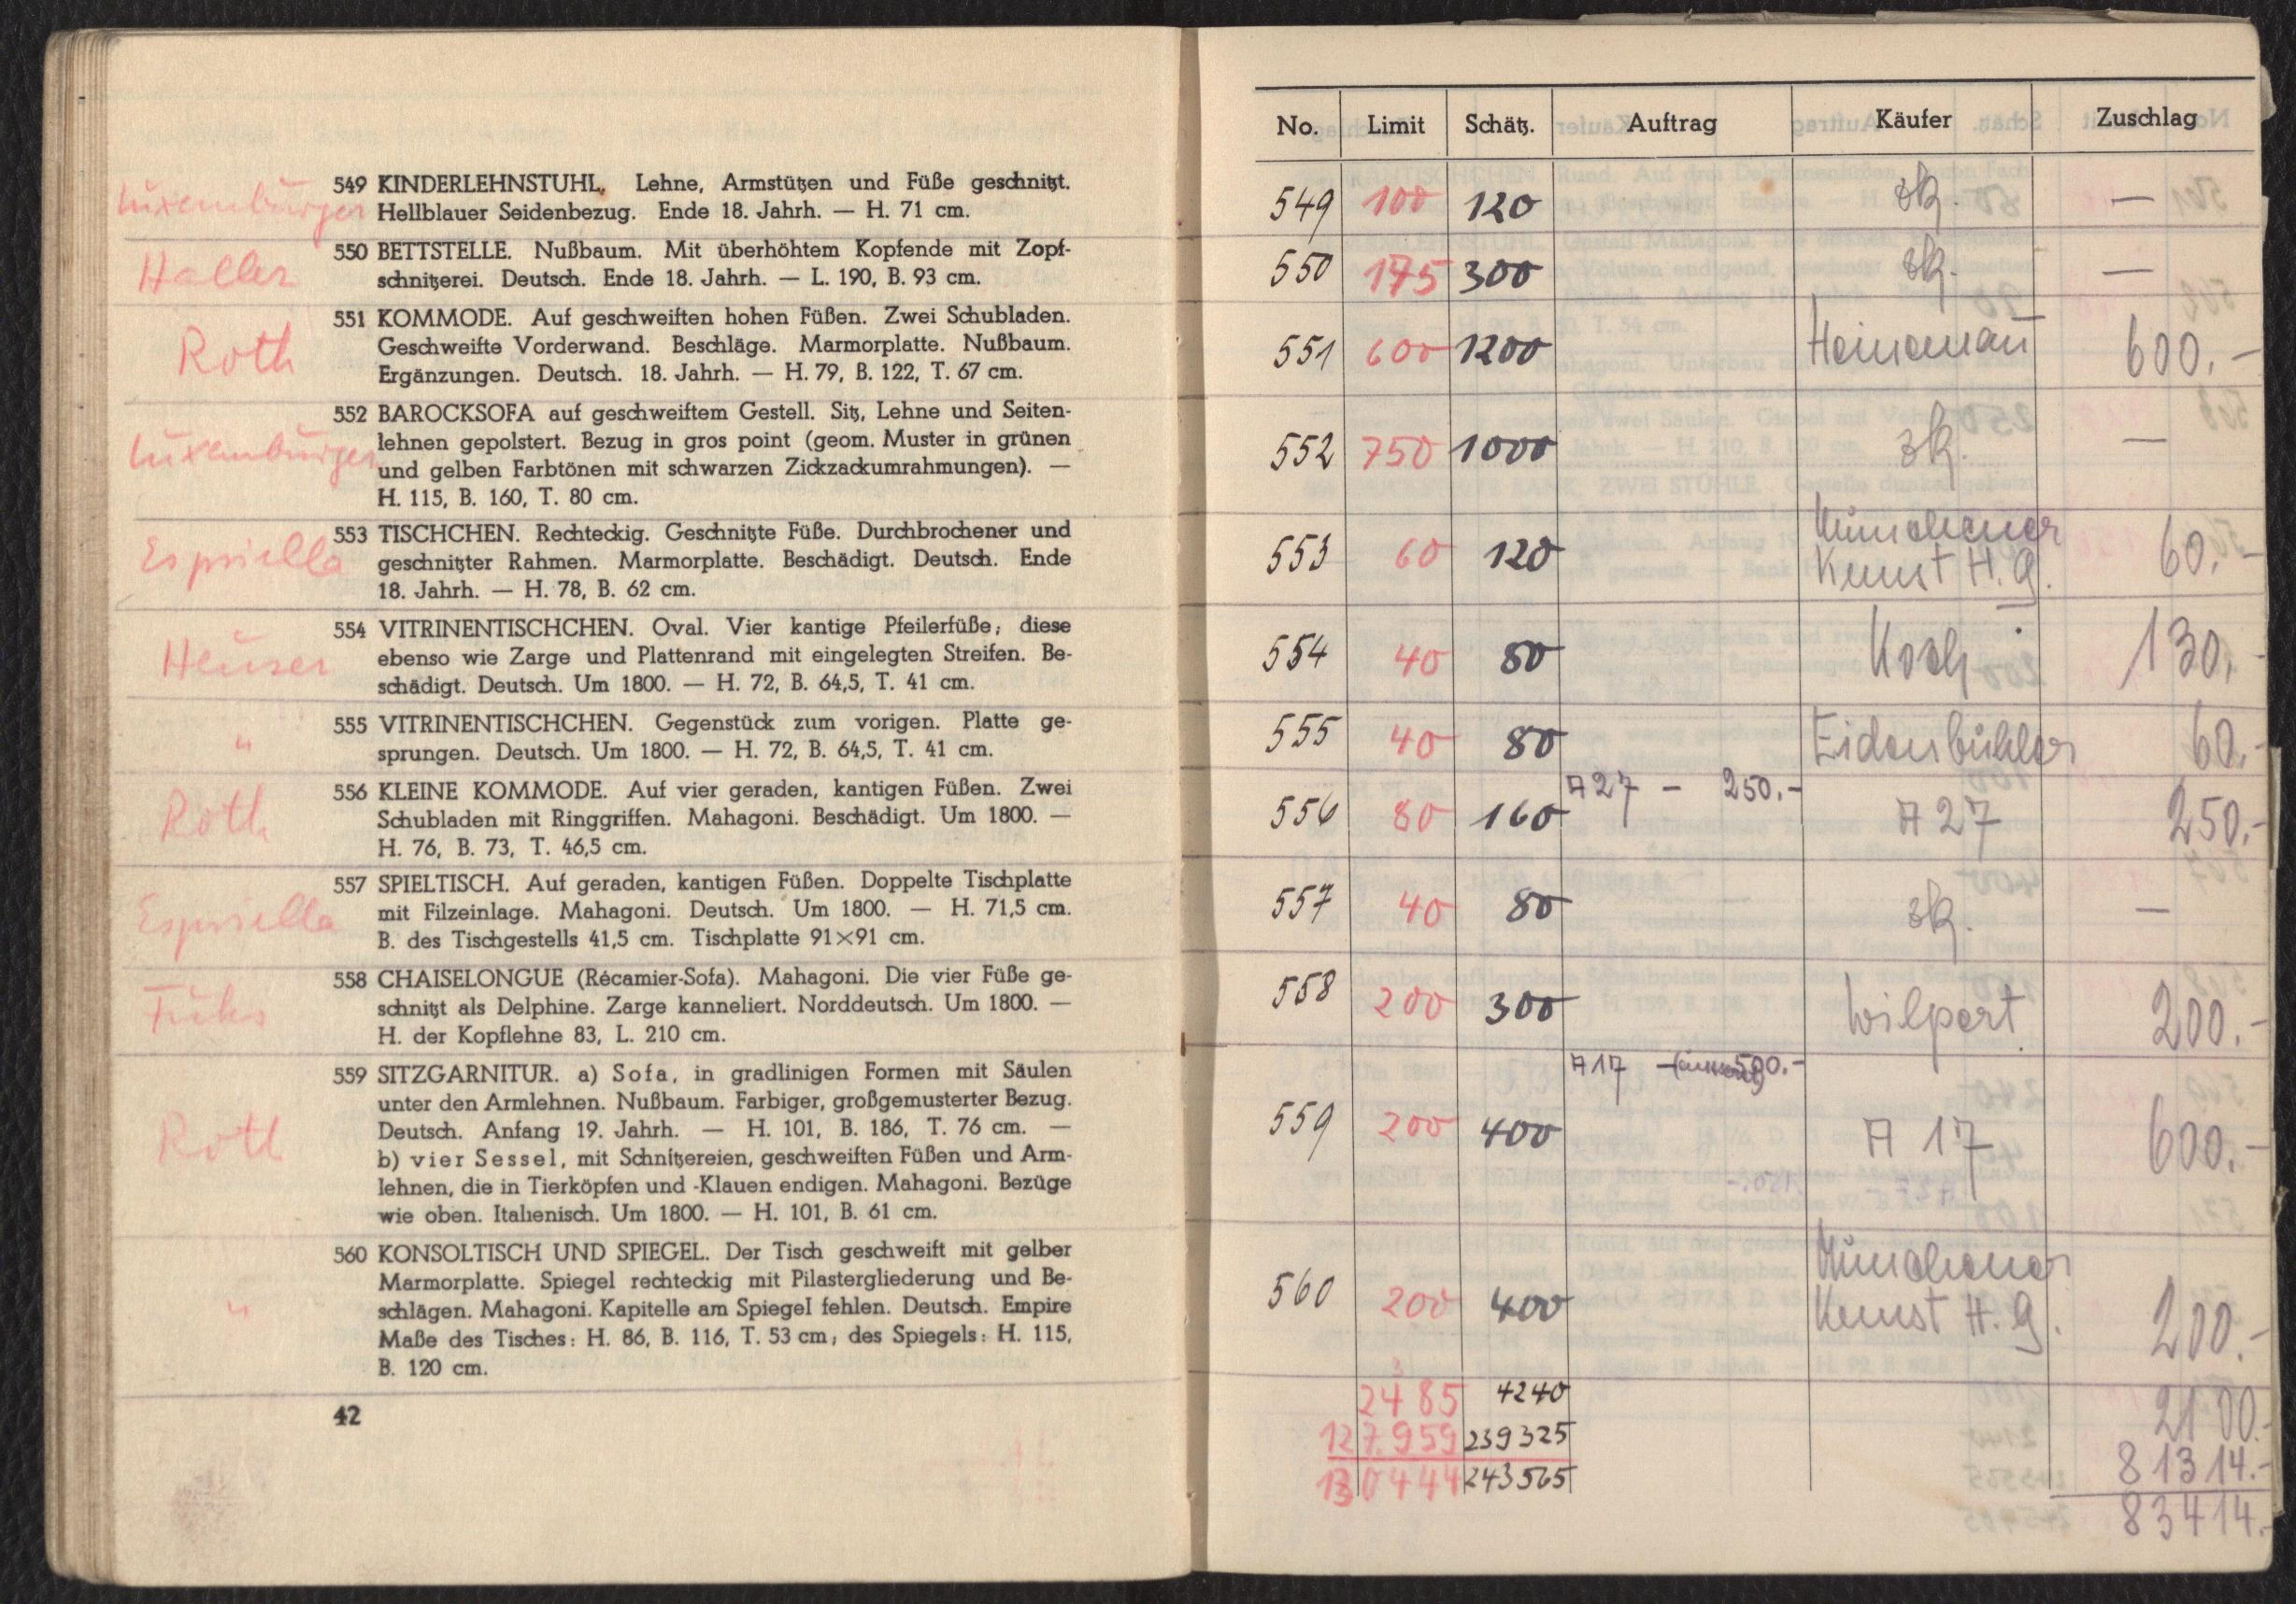 Luxemburger
549 KINDERLEHNSTUHL. Lehne, Armstützen und Füße geschnitzt.
Hellblauer Seidenbezug. Ende 18. Jahrh. — H. 71 cm.
Haller
550 BETTSTELLE. Nußbaum. Mit überhöhtem Kopfende mit Zopf-
schnitzerei. Deutsch. Ende 18. Jahrh. — L. 190, B. 93 cm.
Roth
551 KOMMODE. Auf geschweiften hohen Füßen. Zwei Schubladen.
Geschweifte Vorderwand. Beschläge. Marmorplatte. Nußbaum.
Ergänzungen. Deutsch. 18. Jahrh. — H. 79, B. 122, T. 67 cm.
Luxemburger
552 BAROCKSOFA auf geschweiftem Gestell. Sitz, Lehne und Seiten-
lehnen gepolstert. Bezug in gros point (geom. Muster in grünen
und gelben Farbtönen mit schwarzen Zickzackumrahmungen). —
H. 115, B. 160, T. 80 cm.
Espriella
553 TISCHCHEN. Rechteckig. Geschnitzte Füße. Durchbrochener und
geschnitzter Rahmen. Marmorplatte. Beschädigt. Deutsch. Ende
18. Jahrh. — H. 78, B. 62 cm.
Heuser
554 VITRINENTISCHCHEN. Oval. Vier kantige Pfeilerfüße; diese
ebenso wie Zarge und Plattenrand mit eingelegten Streifen. Be-
schädigt. Deutsch. Um 1800. — H. 72, B. 64,5, T. 41 cm.
"
555 VITRINENTISCHCHEN. Gegenstück zum vorigen. Platte ge-
sprungen. Deutsch. Um 1800. — H. 72, B. 64,5, T. 41 cm.
Roth
556 KLEINE KOMMODE. Auf vier geraden, kantigen Füßen. Zwei
Schubladen mit Ringgriffen. Mahagoni. Beschädigt. Um 1800. —
H. 76, B. 73, T. 46,5 cm.
Espriella
557 SPIELTISCH. Auf geraden, kantigen Füßen. Doppelte Tischplatte
mit Filzeinlage. Mahagoni. Deutsch. Um 1800. — H. 71,5 cm.
B. des Tischgestells 41,5 cm. Tischplatte 91×91 cm.
558 CHAISELONGUE (Récamier-Sofa). Mahagoni. Die vier Füße ge-
schnitzt als Delphine. Zarge kanneliert. Norddeutsch. Um 1800. —
H. der Kopflehne 83, L. 210 cm.
Roth
559 SITZGARNITUR. a) Sofa, in gradlinigen Formen mit Säulen
unter den Armlehnen. Nußbaum. Farbiger, großgemusterter Bezug.
Deutsch. Anfang 19. Jahrh. — H. 101, B. 186, T. 76 cm. —
b) vier Sessel, mit Schnitzereien, geschweiften Füßen und Arm-
lehnen, die in Tierköpfen und -Klauen endigen. Mahagoni. Bezüge
wie oben. Italienisch. Um 1800. — H. 101, B. 61 cm.
"
560 KONSOLTISCH UND SPIEGEL. Der Tisch geschweift mit gelber
Marmorplatte. Spiegel rechteckig mit Pilastergliederung und Be-
schlägen. Mahagoni. Kapitelle am Spiegel fehlen. Deutsch. Empire
Maße des Tisches: H. 86, B. 116, T. 53 cm; des Spiegels: H. 115,
B. 120 cm.
42
No. Limit Schätz. Auftrag Käufer Zuschlag
549 100 120 zk. —
550 175 300 zk. —
551 600 1200 Heinemann 600.-
552 750 1000 zk. —
553 60 120 Münchener
Kunst H. G. 60.-
554 40 80 Koch 130.-
555 40 80 Eidenbühler 60.-
A 27 — 250.-
556 80 160 A 27 250.-
557 40 80 zk. —
558 200 300 Wilpert 200.-
A 17 500.-
559 200 400 A 17 600.-
560 200 400 Münchener
Kunst H. G. 200.-
2485 4240 2100.-
127.959 239325 81314.-
130444 243565 83414.-